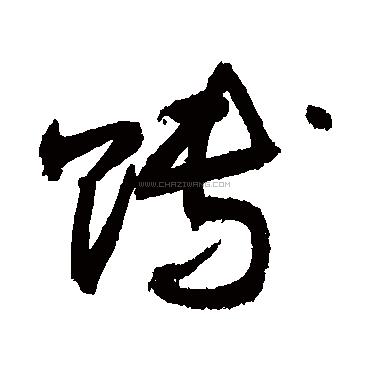 賻
WWW.CHAZIWANG.COM